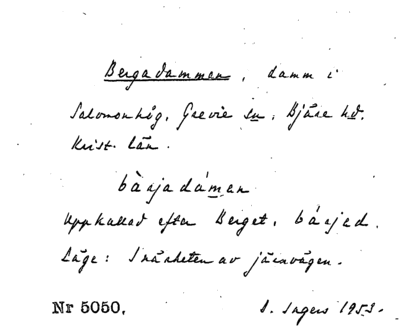 Bergadammen, damm i
Salomonhög, Grevie sn, Bjäre hd.
Krist. län.
bàrjadámen
Uppkallad efter Berget, bárjed.
Läge: I närheten av järnvägen.
Nr 5050.
I. Ingers 1953.